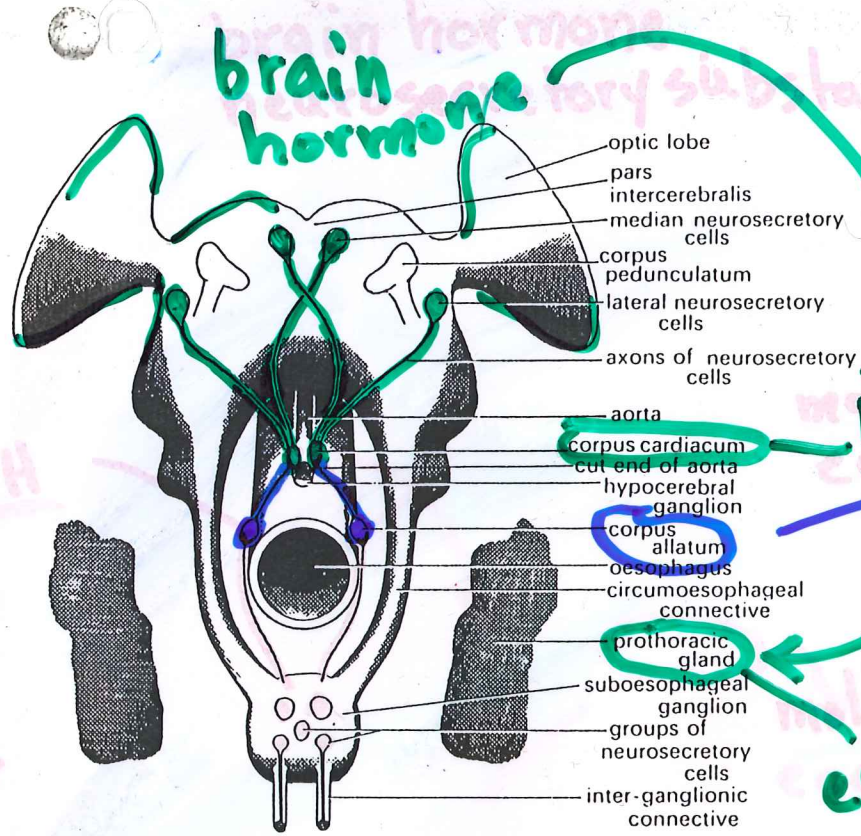 brain hormone
brain
hormone
optic lobe
pars
intercerebralis
median neurosecretory
cells
corpus
pedunculatum
lateral neurosecretory
cells
axons of neurosecretory
cells
aorta
corpus cardiacum
cut end of aorta
hypocerebral
ganglion
corpus
allatum
oesophagus
circumoesophageal
connective
H
prothoracic
gland
suboesophageal
ganglion
groups of
neurosecretory
cells
inter-ganglionic
connective